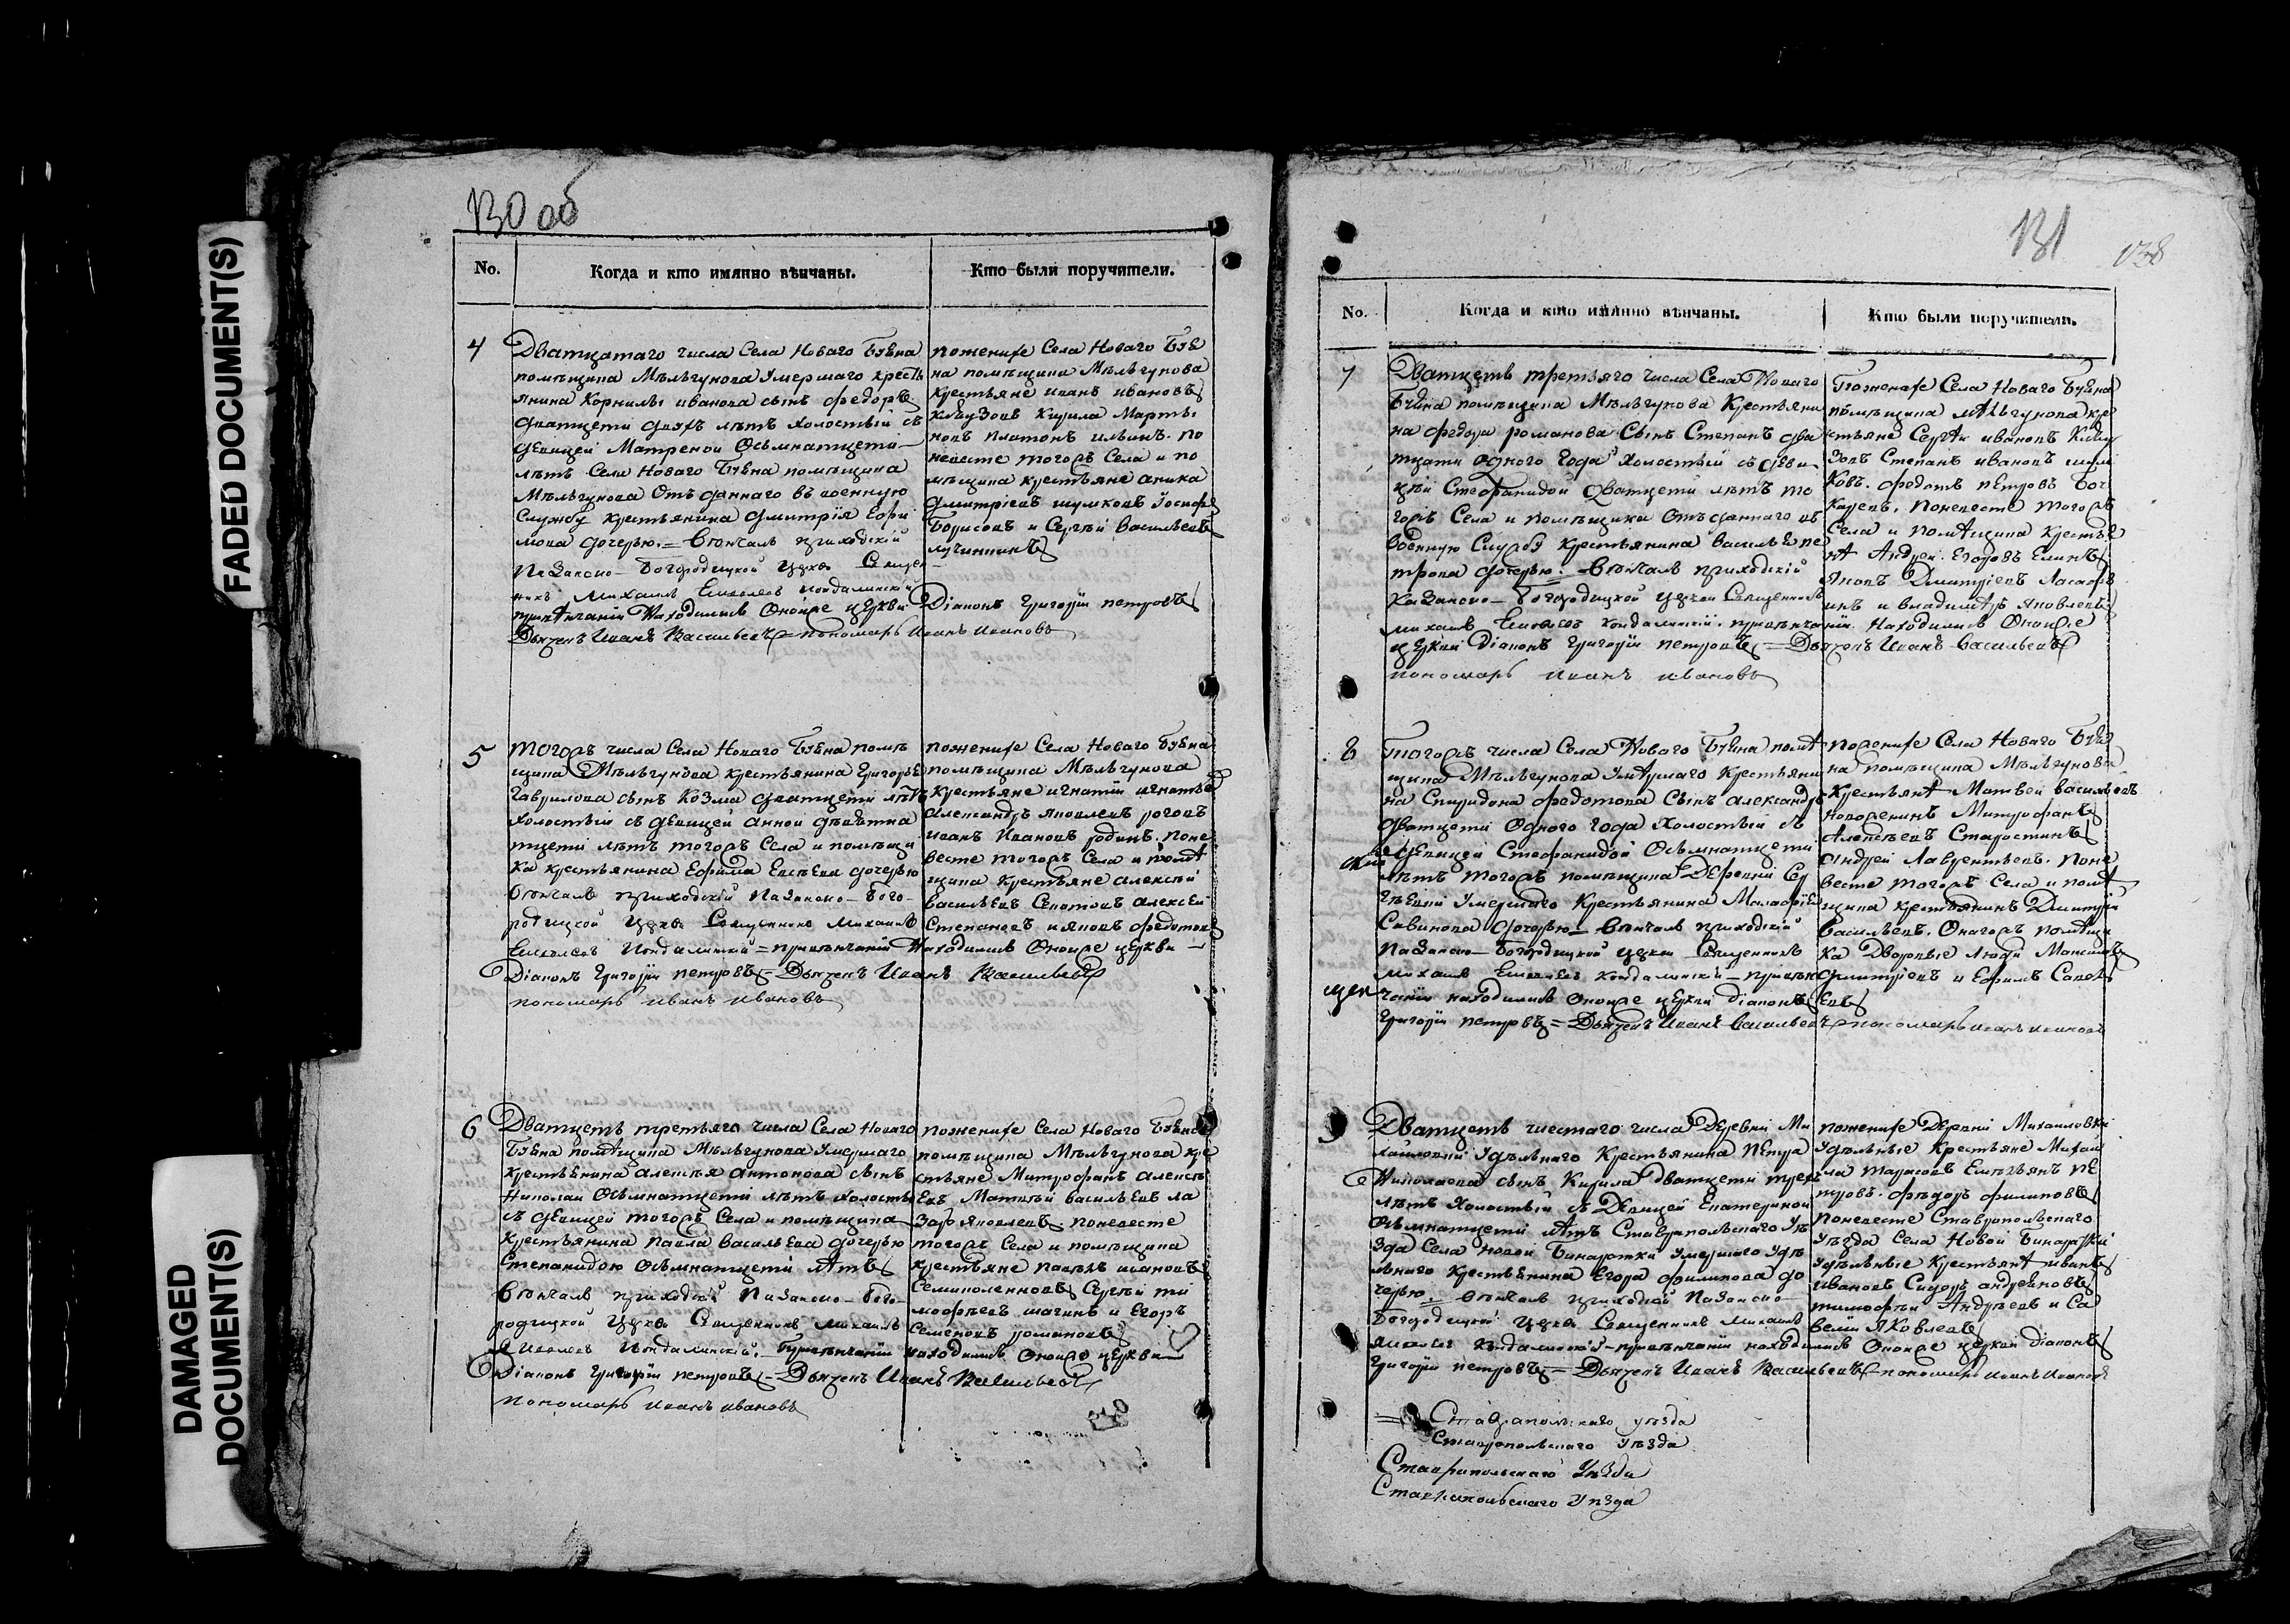 FADED DOCUMENT(S)
DAMAGED
DOCUMENT(S)
130 об
No.
Когда и кто имянно вѣнчаны.
Кто были поручители.
4
Дватцатаго числа Села Новаго Буяна
помѣщика Мѣльгунова Умершаго кресть
янина Корнилы иванова сынъ федоръ
дватцети двухъ лѣтъ холостый съ
девицей Матреной Осьмнатцети
лѣтъ Села Новаго Буяна помѣщика
Мѣльгунова Отъ даннаго въ военную
Службу крестьянина дмитрія Ефи
мова дочерью. = Венчалъ приходскій
Казанско-Богородицкой церкви Священ
никъ Михаилъ
привѣнчаніи Находились Оноиже церкви Діаконъ Григорій петровъ
Дьячекъ Иванъ Васильевъ = пономарь Иванъ Ивановъ
поженихе Села Новаго Буя
на помѣщика Мѣльгунова
Крестьяне иванъ ивановъ
Кирила Марты
новъ платонъ ильинъ. по
невесте тогожъ Села и по
мѣщика крестьяне аника
дмитріевъ шумковъ Іосифъ
Борисовъ и Сергѣй васильевъ
5
тогожъ числа Села Новаго Буяна помѣ
щика Мѣльгунова крестьянина Григорья
гаврилова сынъ Козма дватцети лѣтъ
холостый съ девицей анной девятна
тцети лѣтъ тогожъ Села и помѣщи
ка крестьянина Ефима Евсѣева дочерью
Венчалъ приходскій Казанско-Бого-
родицкой церкви Священникъ Михаилъ
= привѣнчаніи Находились Оноиже церкви
Діаконъ Григорій петровъ = Дьячекъ Иванъ Васильевъ
пономарь Иванъ Ивановъ
поженихе Села Новаго Буяна
помѣщика Мѣльгунова
крестьяне игнатій игнатьев
александръ яковлевъ роговъ
иванъ Ивановъ родинъ. поне
весте тогожъ Села и помѣ
щика Крестьяне алексѣй
васильевъ алексей
Степановъ ияковъ федотов
6
Дватцеть третьяго числа Села Новаго
Буяна помѣщика Мѣльгунова Умершаго
крестьянина алексѣя антонова сынъ
Николаи Осьмнатцети лѣтъ холосты
съ девицей тогожъ Села и помѣщика
Крестьянина павла васильева дочерью
Степанидою Осьмнатцети лѣтъ
Венчалъ приходскій Казанско-Бого-
родицкой церкви Священникъ Михаилъ
привѣнчаніи находились Оноиже церкви
Діаконъ Григорій петровъ = Дьячекъ Иванъ Васильевъ
пономарь Иванъ Ивановъ
поженихе Села Новаго Буяна
помѣщика Мѣльгунова кре
стьяне Митрофанъ алексѣ
евъ Матвѣй васильевъ ла
зарь яковлевъ. поневесте
тогожъ Села и помѣщика
крестьяне павелъ ивановъ
Сергѣй ти
мофѣевъ шагинъ и Егоръ
Семеновъ романовъ
131
138
No.
Когда и кто имянно вѣнчаны.
Кто были поручители.
7
Дватцеть третьяго числа Села Новаго
Буяна помѣщика Мѣльгунова Крестьяни
на федора романова Сынъ Степанъ два
тцати одного года холостый съ деви
цей Стефанидой дватцети лѣтъ то
гожъ Села и помѣщика Отъ даннаго въ
Военную Службу крестьянина василья пе
трова дочерью: = Венчалъ приходскій
Казанско-Богородицкой церкви Священникъ
Михаилъ привѣнчаніи Находились Оноиже
церкви Діаконъ Григорій петровъ = Дьячекъ Иванъ Васильевъ
пономарь Иванъ Ивановъ
Поженихе Села Новаго Буяна
помѣщика Мѣльгунова кре
стьяне Сергѣй ивановъ
Степанъ ивановъ шум
ковъ. федотъ петровъ
поневесте тогожъ
Села и помѣщика крестья
нѣ Андрей Егоровъ
яковъ Дмитріевъ
и владимѣръ яковлевъ
8
тогожъ числа Села Новаго Буяна помѣ
щика Мѣльгунова Умершаго Крестьяни
на Спиридона федотова Сынъ александръ
дватцети Одного года холостый съ
девицей Стефанидой Осьмнатцети
лѣтъ тогожъ помѣщика Деревни Сер
гѣевки Умершаго Крестьянина
Савинова дочерью = Венчалъ приходскій
Казанско-Богородицкой церкви Священникъ
Михаилъ привѣн
чаніи находились Оноиже церкви Діаконъ
Григорій петровъ = Дьячекъ Иванъ Васильевъ = пономарь Иванъ Ивановъ
поженихе Села Новаго Буя
на помѣщика Мѣльгунова
Крестьянѣ Матвей васильевъ
Митрофанъ
Алексѣевъ Старостинъ
Андрей Лаврентьевъ. поне
весте тогожъ Села и помѣ
щика крестьянинъ Дмитрій
васильевъ. Онагожъ помѣщи
ка Дворовые люди
дмитріевъ и Ефимъ Савель
евъ
9
Дватцеть шестаго числа Деревни Ми
хайловки Удѣльнаго Крестьянина петра
Николаева сынъ Кирила дватцети трехъ
лѣтъ холостый съ Девицей Екатериной
Осьмнатцети лѣтъ Ставропольскаго Уѣ
зда Села Новой Бинарадки Умершаго Удѣ
льнаго крестьянина Егора филипова до
черью = Венчалъ приходскій Казанско-
Богородицкой церкви Священникъ Михаилъ
привѣнчаніи находились Оноиже церкви Діаконъ
Григорій петровъ = Дьячекъ Иванъ Васильевъ = пономарь Иванъ Ивановъ
поженихе Деревни Михаиловки
Удѣльные Крестьяне Михай
ла тарасовъ Емельянъ пе
тровъ. федоръ филиповъ
поневесте Ставропольскаго
Уѣзда Села Новой Бинарадки
Удѣльные Крестьянѣ иванъ
ивановъ Сидоръ андреяновъ
тимофѣй Андрѣевъ и Са
велий Яковлевъ
Ставропольскаго уѣзда
Ставропольскаго Уѣзда
Ставропольскаго Уѣзда
Ставропольскаго Уѣзда